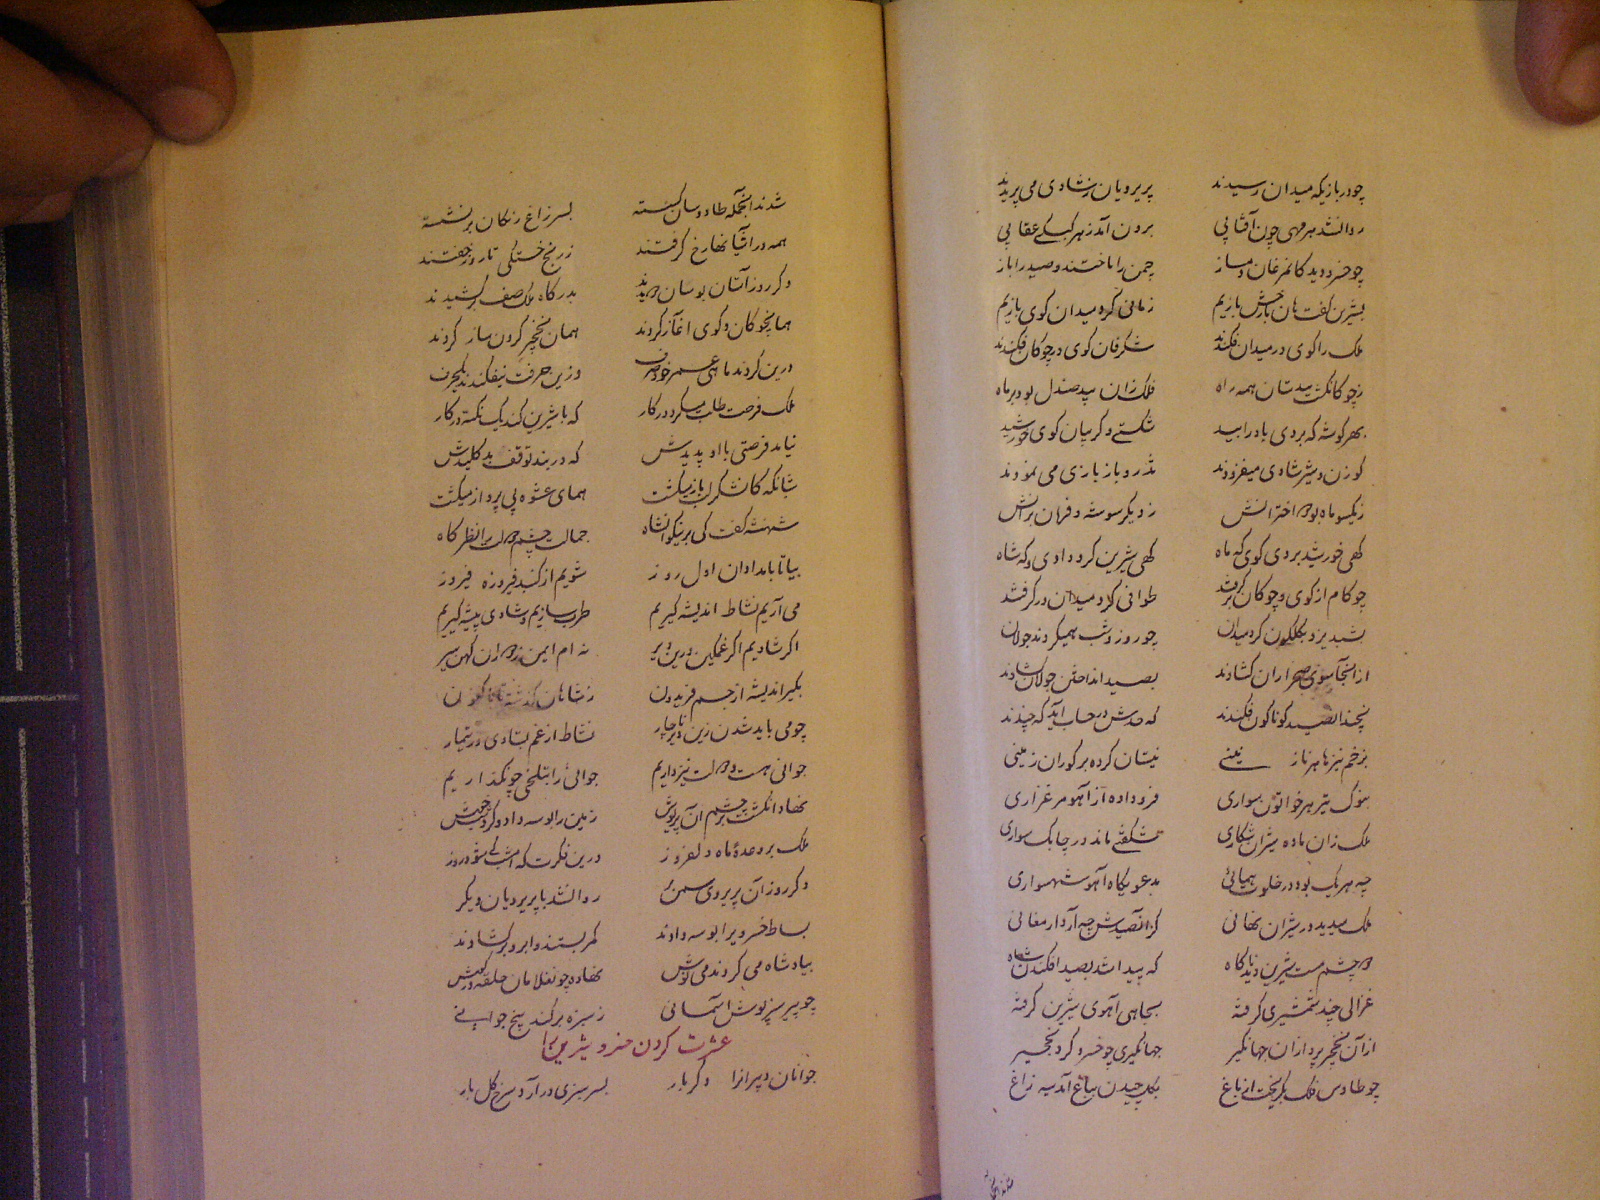 چو در بازیکه میدان رسیدند پریرویان ز شادی می پریدند
روانشد هر مهی چون آفتابی برون آمد ز هر کبکی عقابی
چو خسرو دید کانمرغان دمساز چمن را باختند و صید را باز
بشیرین گفت هان تا رخش بازیم زمانی گرد میدان گوی بازیم
ملک را گوی در میدان فکندند شگرفان گوی در چوگان فکندند
ز چوگان گشته بیدستان همه راه فلک زان بید صندل بود بر ماه
بهر گوشه که بردی باد را بید شکستی در گریبان گوی خورشید
گوزن و شیر شادی میفزودند تذرو باز بازی می نمودند
ز یکسو ماه بود اخترانش ز دیگر سو شه و فرمان برانش
گهی خورشید بردی گوی گه ماه گهی شیرین گرو دادی و گه شاه
چو کام از گوی و چوگان برگرفتند طوافی گرد میدان در گرفتند
بشبدیز و بگلگون گرد میدان چو روز و شب همیکردند جولان
از آنجا سوی صحرا ران گشادند بصید انداختن جولان گشادند
نچندان صید گوناگون فکندند که حدش در حساب آید که چندند
بزخم نیزها هر نازنینی نیستان کرده بر گوران زمینی
بنوک تیر هر خاتون سواری فرو داده از آهو مرغزاری
ملک زان ماده شیران شکاری شگفتی مانده در چابک سواری
چه هر یک بود در خلوت همائی بدعویگاه آهو شهسواری
ملک میدید در شیران نهانی کز آنصیدش چه آرد ارمغانی
و چشم مست شیرین دید ناگاه که پیدا شد بصید افکندن شاه
غزالی چند شمشیری گرفته بجاهی آهوی شیرین گرفته
از آن نخچیر پردازان جهانگیر جهانگیری چو خسرو کرد نخجیر
چو طاوس فلک بگریخت از باغ بگل چیدن بباغ آمد سیه زاغ
شدند آنجمله طاوسان
شدند آنجمله طاوسان کیسته بسر زاغ رنگان بر نشسته
همه در آشیانها رخ گرفتند ز رنج خستگی تا روز خفتند
دگر روز آستان بوسان دویدند بدرگاه ملک صف برکشیدند
همانچوگان و گوی آغاز کردند همان نخچیر کردن ساز کردند
درین کردند ماهی عمر خود صرف وزین حرفت نیفکندند یکحرف
ملک فرصت طلب میکرد در کار که با شیرین کند یک نکته در کار
نیامد فرصتی با او پدیدش که در بند توقف بد کلیدش
شبانگه کانشکر لب باز میگشت همای عشوه بی پرواز میگشت
شهنشه گفت کی بر نیکوان شاه جمالت چشم دولت را نظرگاه
بیا تا بامدادان اول روز شویم از گنبد فیروزه فیروز
می آریم نشاط اندیشه گیریم طرب سازیم و شادی پیشه گیریم
اگر شادیم اگر غمگین درین دیر نه ام ایمن ز دوران کهن سیر
بگیر اندیشه از جم و فریدون ز شاهان گذشته تا باکنون
چو می باید شدن زین دیر ناچار نشاط از غم به شادی ز تیمار
جوانی هست و دولت نیز داریم جوانی را بتلخی چون گذاریم
نهاد انگشت بر چشم آن پریوش زمین را بوسه داد و کرد شبخوش
ملک بر وعدهٔ ماه دلفروز درین فکرت که امشب کی شود روز
دگر روز آن پریروی سمنبر روانشد با پریرویان دیگر
بساط خسروی را بوسه دادند کمر بستند و ابرو برگشادند
بیاد شاه می کردند می نوش نهاده چو نغلامان حلقه در گوش
چو پیر سبزپوش آسمانی ز سبزه برکشد بیخ جوانی
عشرت کردن خسرو شیرین را
جوانان و پیرانرا دگر بار بسرسبزی در آرد سرخ گل بار